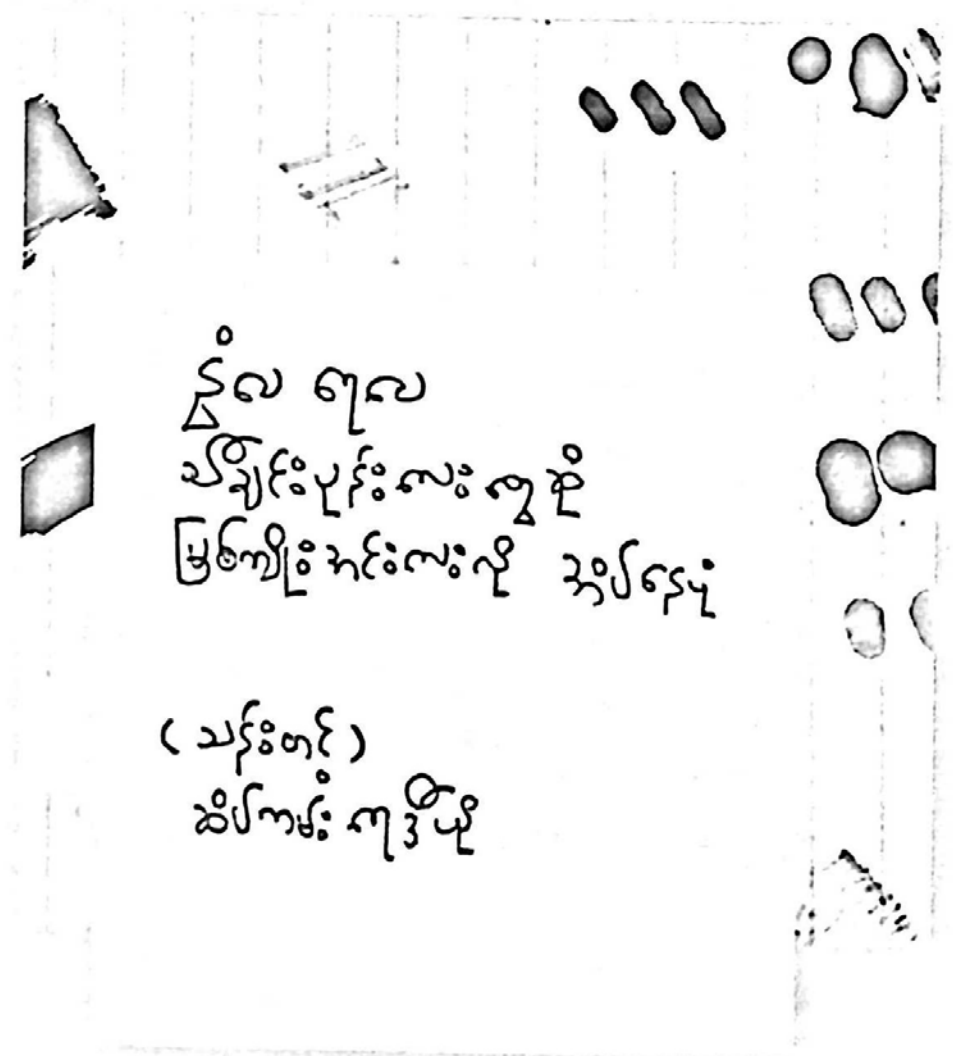 နွံလ ရေလ
သီချင်းပုန်းလေး ဆို
မြစ်ကျိုးအင်းလေးလို အိပ်နေပုံ
(သန်းတင်)
ဆိပ်ကမ်း ရေဒီယို